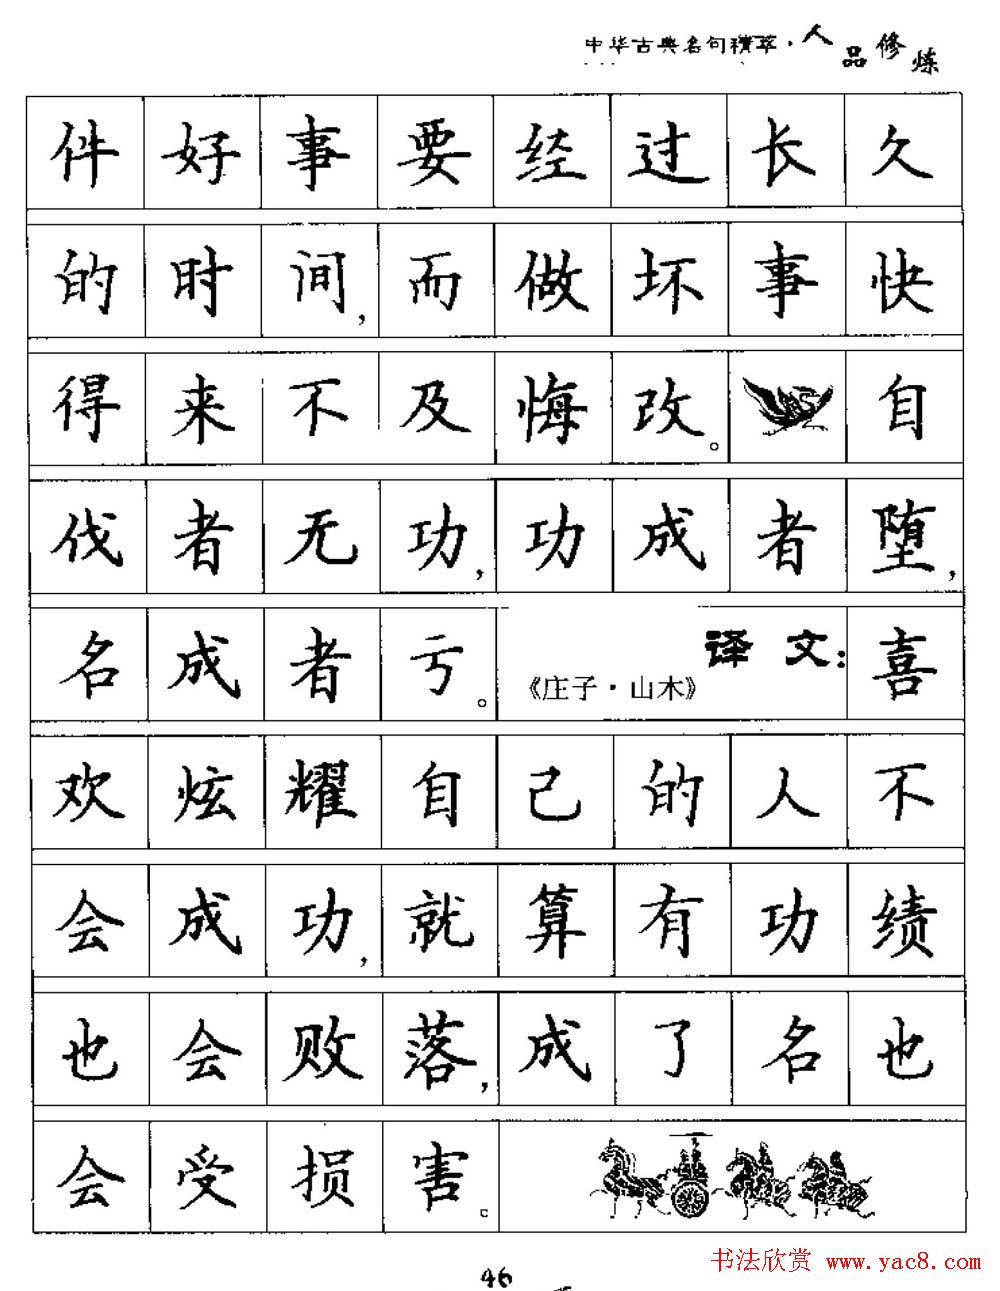 中华古典名句精萃·人品修炼
件好事要经过长久
的时间，而做坏事快
得来不及悔改。自
伐者无功，功成者堕，
名成者亏。《庄子·山木》译文：喜
欢炫耀自己的人不
会成功，就算有功绩
也会败落，成了名也
会受损害。
46
书法欣赏 www.yac8.com